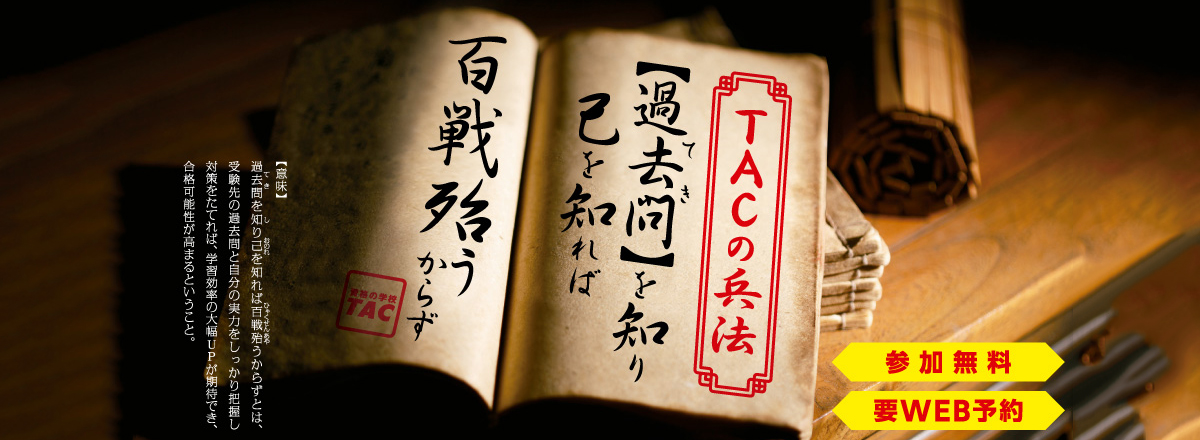 TACの兵法
【過去問】を知り
てき
己を知れば
百戦殆う
からず
資格の学校
TAC
【意味】
過去問を知り己を知れば百戦殆うからずとは、
てき し おのれ ひゃくせんあや
受験先の過去問と自分の実力をしっかり把握し
対策をたてれば、学習効率の大幅UPが期待でき、
合格可能性が高まるということ。
参加無料
要WEB予約